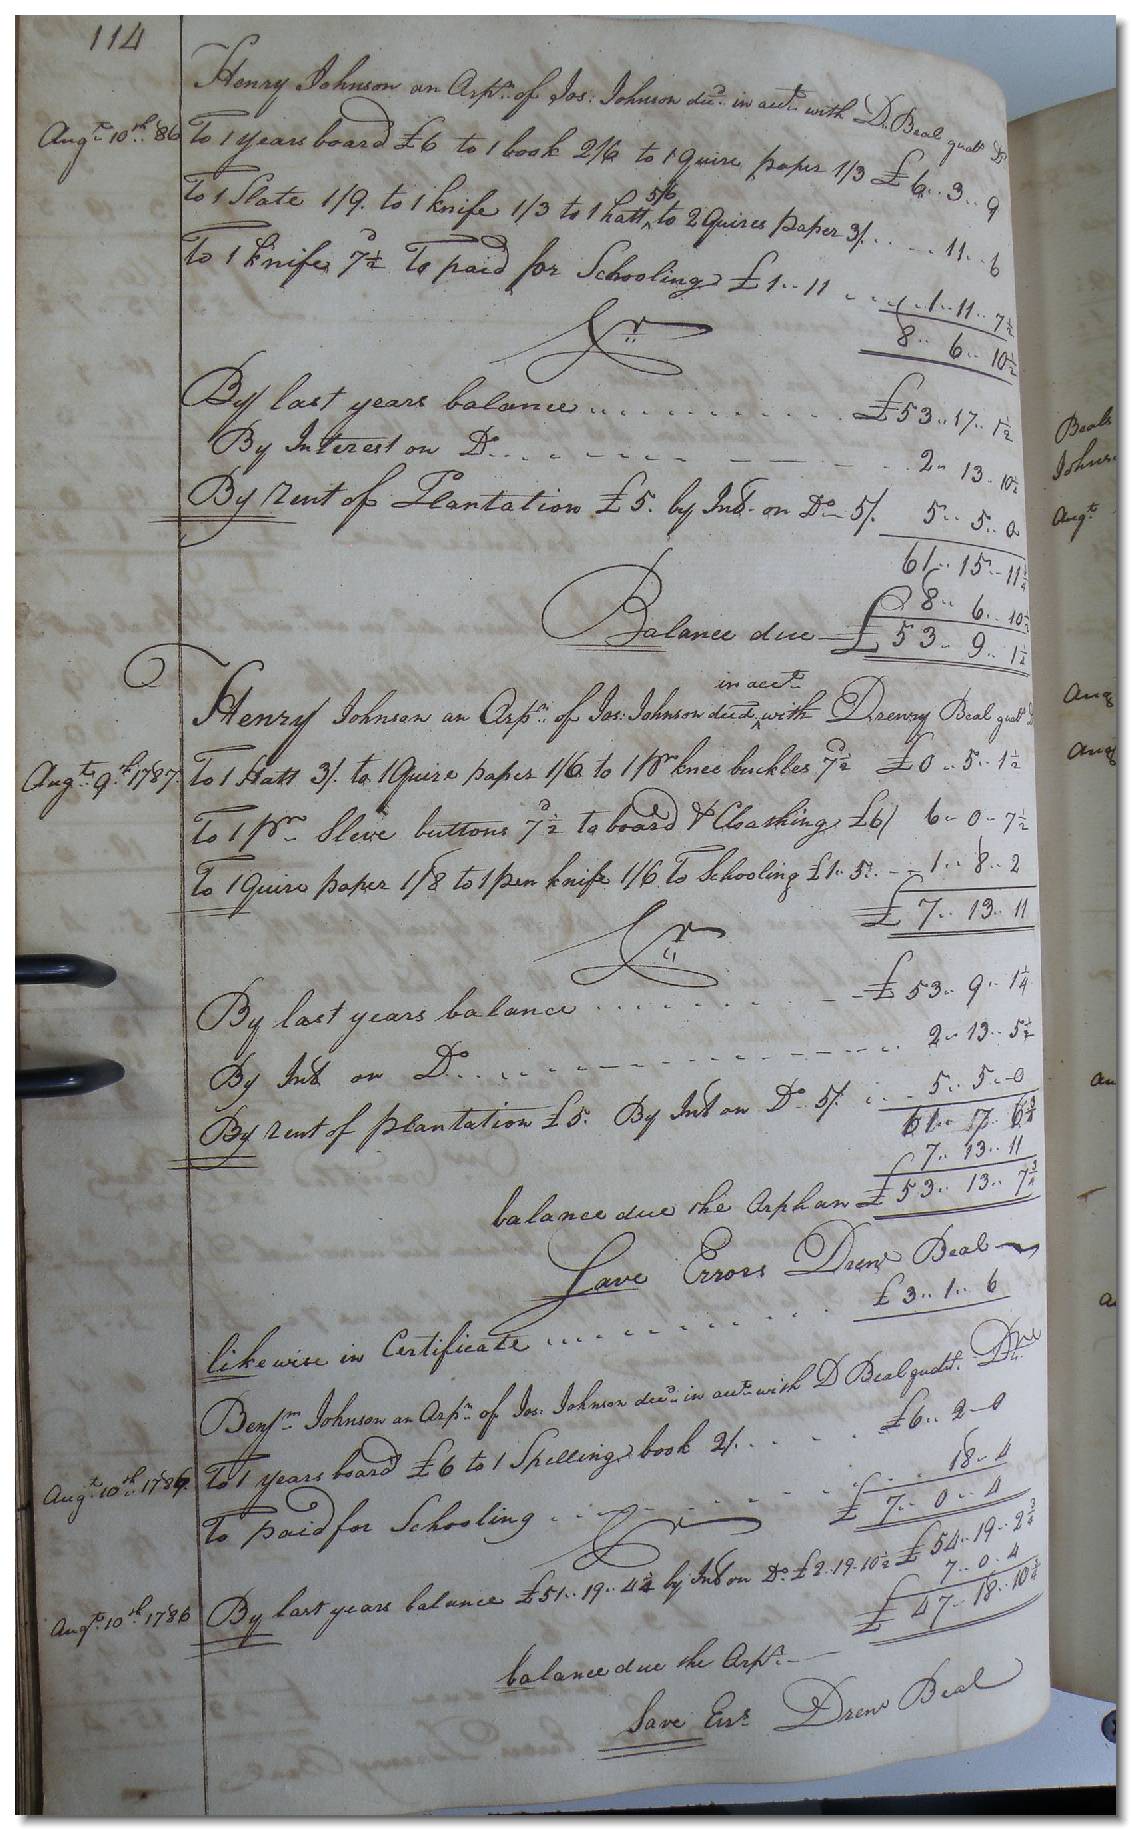 114
Henry Johnson an Orpn. of Jos: Johnson decd. in acct. with D. Beal guatt. Dr.
Augt. 10th. 86 To 1 years board £6 to 1 book 2/6 to 1 Quire paper 1/3 £6..3..9
To 1 Slate 1/9. to 1 knife 1/3 to 1 hatt 5/6 to 2 Quires paper 3/. .... 11..6
To 1 knife 7½d To paid for Schooling £1..11 .... 1..11..7½
8..6..10½
Cr
By last years balance .......... £53..17..1½
By Interest on Do. .......... 2..13..10½
By rent of Plantation £5. by Int. on Do. 5/. 5..5..0
61..15..11¼
8..6..10½
Balance due £53..9..1½
Henry Johnson an Orpn. of Jos: Johnson decd. in acct. with Drewry Beal guatt. D
Augt. 9th. 1787. To 1 Hatt 3/. to 1 Quire paper 1/6. to 1 pr. knee buckles 7½d £0..5..1½
To 1 pr. Sleve buttons 7½d to board & Cloashing £6/ 6..0..7½
To 1 Quire paper 1/8 to 1 pen knife 1/6. To Schooling £1..5. -- 1..8..2
£7..13..11
Cr
By last years balance .......... £53..9..1¼
By Int. on Do. .......... 2..13..5½
By rent of plantation £5. By Int on Do. 5/. ... 5..5..0
61..17..6¾
7..13..11
balance due the Orphan £53..13..7¾
Save Errors Drew Beal
likewise in Certificate .......... £3..1..6
Benjm. Johnson an Orpn. of Jos. Johnson decd. in acct. with D Beal guatt. Dr.
Augt. 10th. 1786. To 1 years board £6 to 1 Spelling book 2/. .... £6..2..0
To paid for Schooling .......... 18..4
£7..0..4
Cr
Augt. 10th. 1786 By last years balance £51..19..4¼ by Int on Do. £2..19..10½ £54..19..2¾
7..0..4
£47..18..10¾
balance due the Orpn.
Save Errs. Drew Beal
Beals
Johns
Augt.
Aug
Aug
Au
a